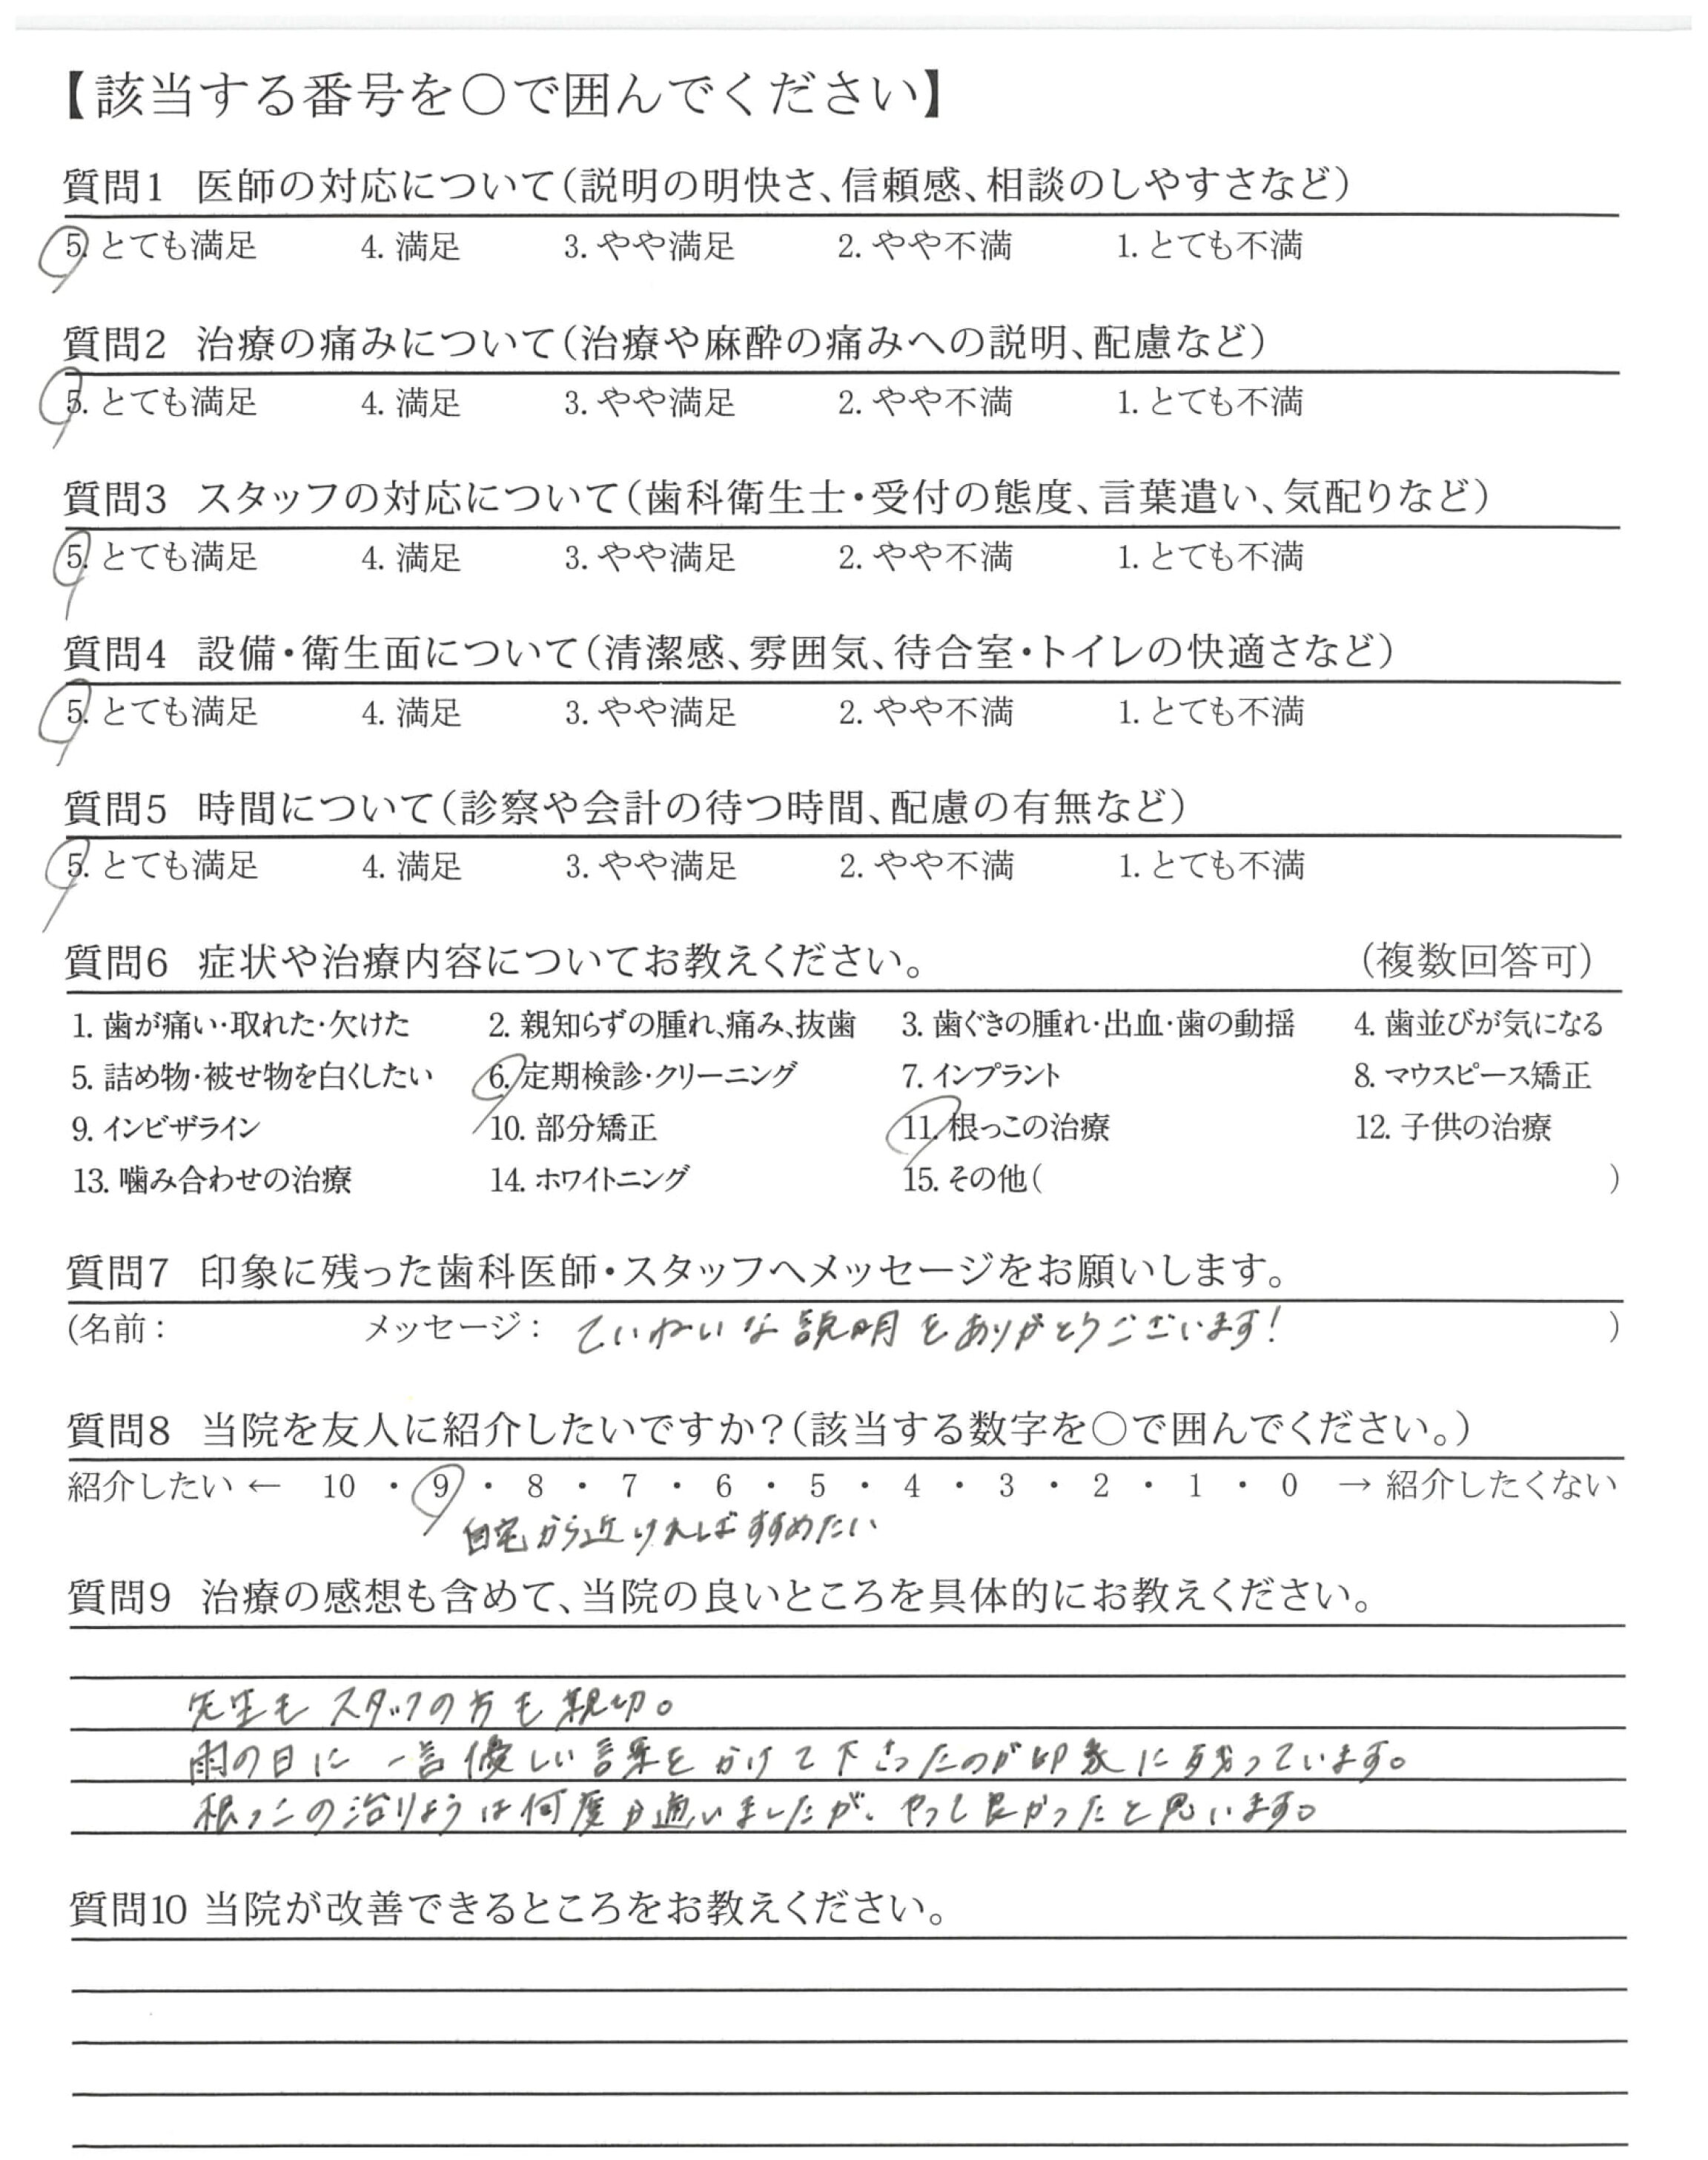 【該当する番号を○で囲んでください】
質問1 医師の対応について(説明の明快さ、信頼感、相談のしやすさなど)
5. とても満足 4. 満足 3. やや満足 2. やや不満 1. とても不満
質問2 治療の痛みについて(治療や麻酔の痛みへの説明、配慮など)
5. とても満足 4. 満足 3. やや満足 2. やや不満 1. とても不満
質問3 スタッフの対応について(歯科衛生士・受付の態度、言葉遣い、気配りなど)
5. とても満足 4. 満足 3. やや満足 2. やや不満 1. とても不満
質問4 設備・衛生面について(清潔感、雰囲気、待合室・トイレの快適さなど)
5. とても満足 4. 満足 3. やや満足 2. やや不満 1. とても不満
質問5 時間について(診察や会計の待つ時間、配慮の有無など)
5. とても満足 4. 満足 3. やや満足 2. やや不満 1. とても不満
質問6 症状や治療内容についてお教えください。 (複数回答可)
1. 歯が痛い・取れた・欠けた 2. 親知らずの腫れ、痛み、抜歯 3. 歯ぐきの腫れ・出血・歯の動揺 4. 歯並びが気になる
5. 詰め物・被せ物を白くしたい 6. 定期検診・クリーニング 7. インプラント 8. マウスピース矯正
9. インビザライン 10. 部分矯正 11. 根っこの治療 12. 子供の治療
13. 噛み合わせの治療 14. ホワイトニング 15. その他( )
質問7 印象に残った歯科医師・スタッフへメッセージをお願いします。
(名前: メッセージ: ていねいな説明をありがとうございます! )
質問8 当院を友人に紹介したいですか?(該当する数字を○で囲んでください。)
紹介したい ← 10 ・ 9 ・ 8 ・ 7 ・ 6 ・ 5 ・ 4 ・ 3 ・ 2 ・ 1 ・ 0 → 紹介したくない
自宅から近ければすすめたい
質問9 治療の感想も含めて、当院の良いところを具体的にお教えください。
先生もスタッフの方も親切。
雨の日に一言優しい言葉をかけて下さったのが印象に残っています。
根っこの治りょうは何度か通いましたが、やって良かったと思います。
質問10 当院が改善できるところをお教えください。